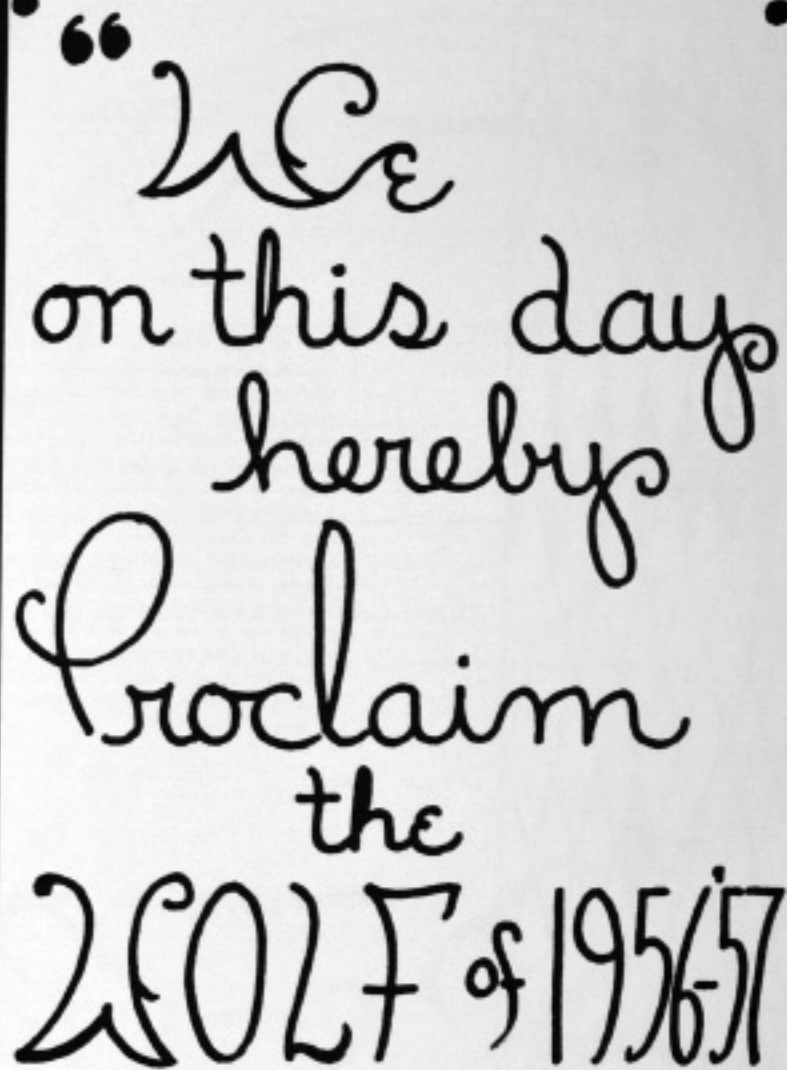 “We
on this day
hereby
Proclaim
the
WOLF of 1956-'57